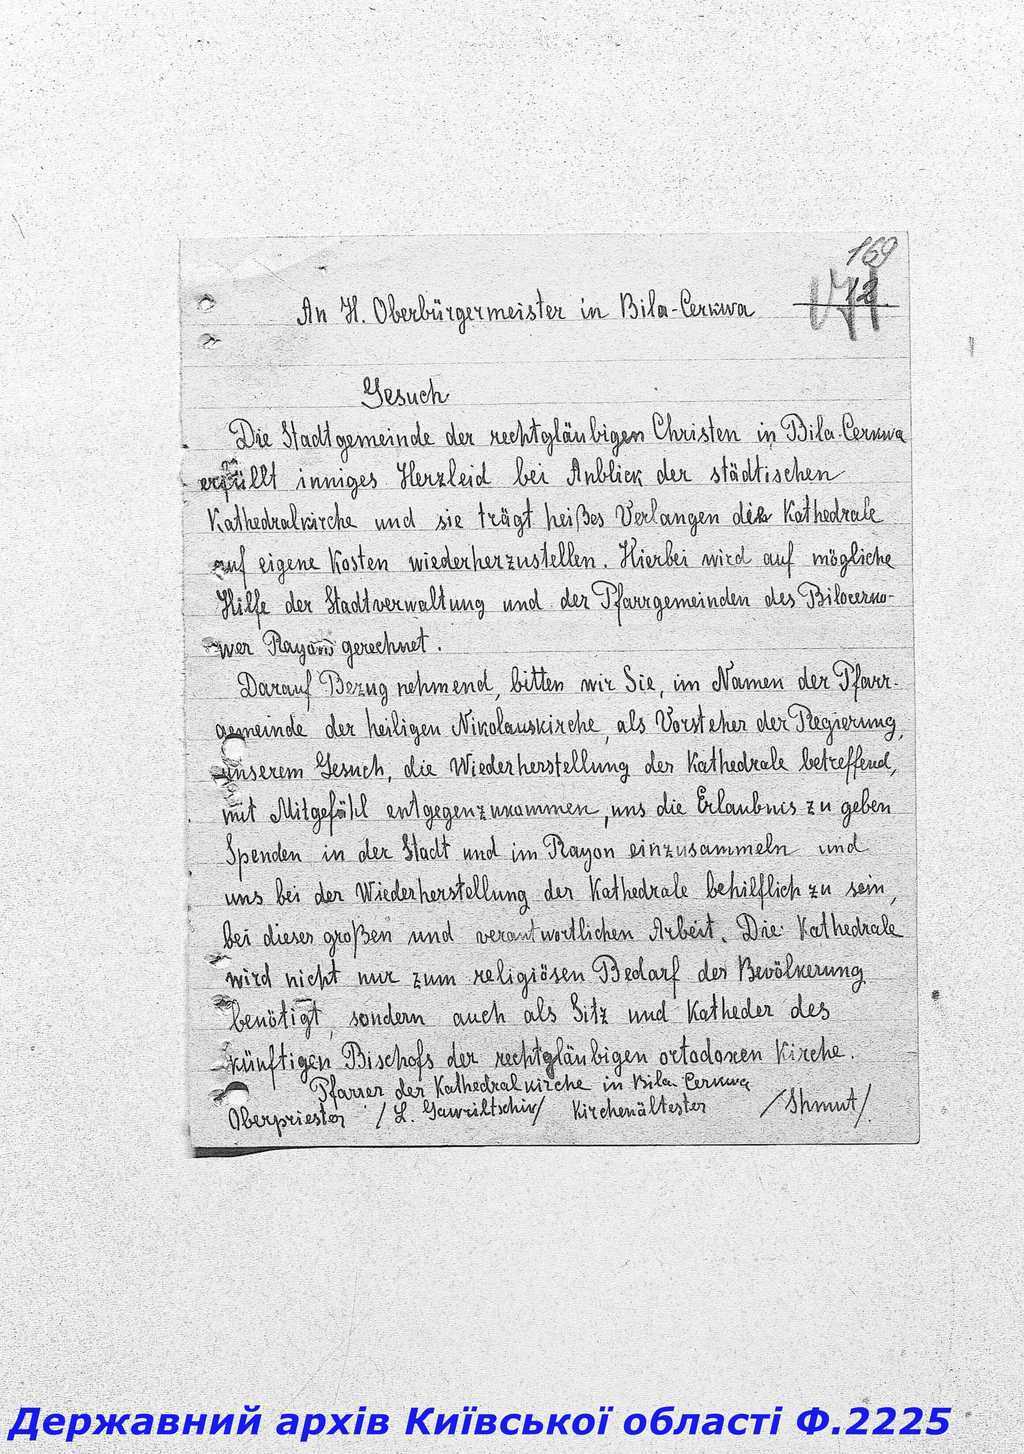 169
An H. Oberbürgermeister in Bila-Cerkwa
Gesuch
Die Stadtgemeinde der rechtgläubigen Christen in Bila-Cerkwa
erfüllt inniges Herzleid bei Anblick der städtischen
Kathedralkirche und sie trägt heißes Verlangen die Kathedrale
auf eigene Kosten wiederherzustellen. Hierbei wird auf mögliche
Hilfe der Stadtverwaltung und der Pfarrgemeinden des Bilocerko-
wer Rayons gerechnet.
Darauf Bezug nehmend, bitten wir Sie, im Namen der Pfarr-
gemeinde der heiligen Nikolauskirche, als Vorsteher der Regierung,
unserem Gesuch, die Wiederherstellung der Kathedrale betreffend,
mit Mitgefühl entgegenzukommen, uns die Erlaubnis zu geben
Spenden in der Stadt und im Rayon einzusammeln und
uns bei der Wiederherstellung der Kathedrale behilflich zu sein,
bei dieser großen und verantwortlichen Arbeit. Die Kathedrale
wird nicht nur zum religiösen Bedarf der Bevölkerung
benötigt, sondern auch als Sitz und Katheder des
künftigen Bischofs der rechtgläubigen ortodoxen Kirche.
Pfarrer der Kathedralkirche in Bila-Cerkwa
Oberpriester /L. Gawriltschiv/ Kirchenältester /Shmut/.
Державний архів Київської області Ф.2225